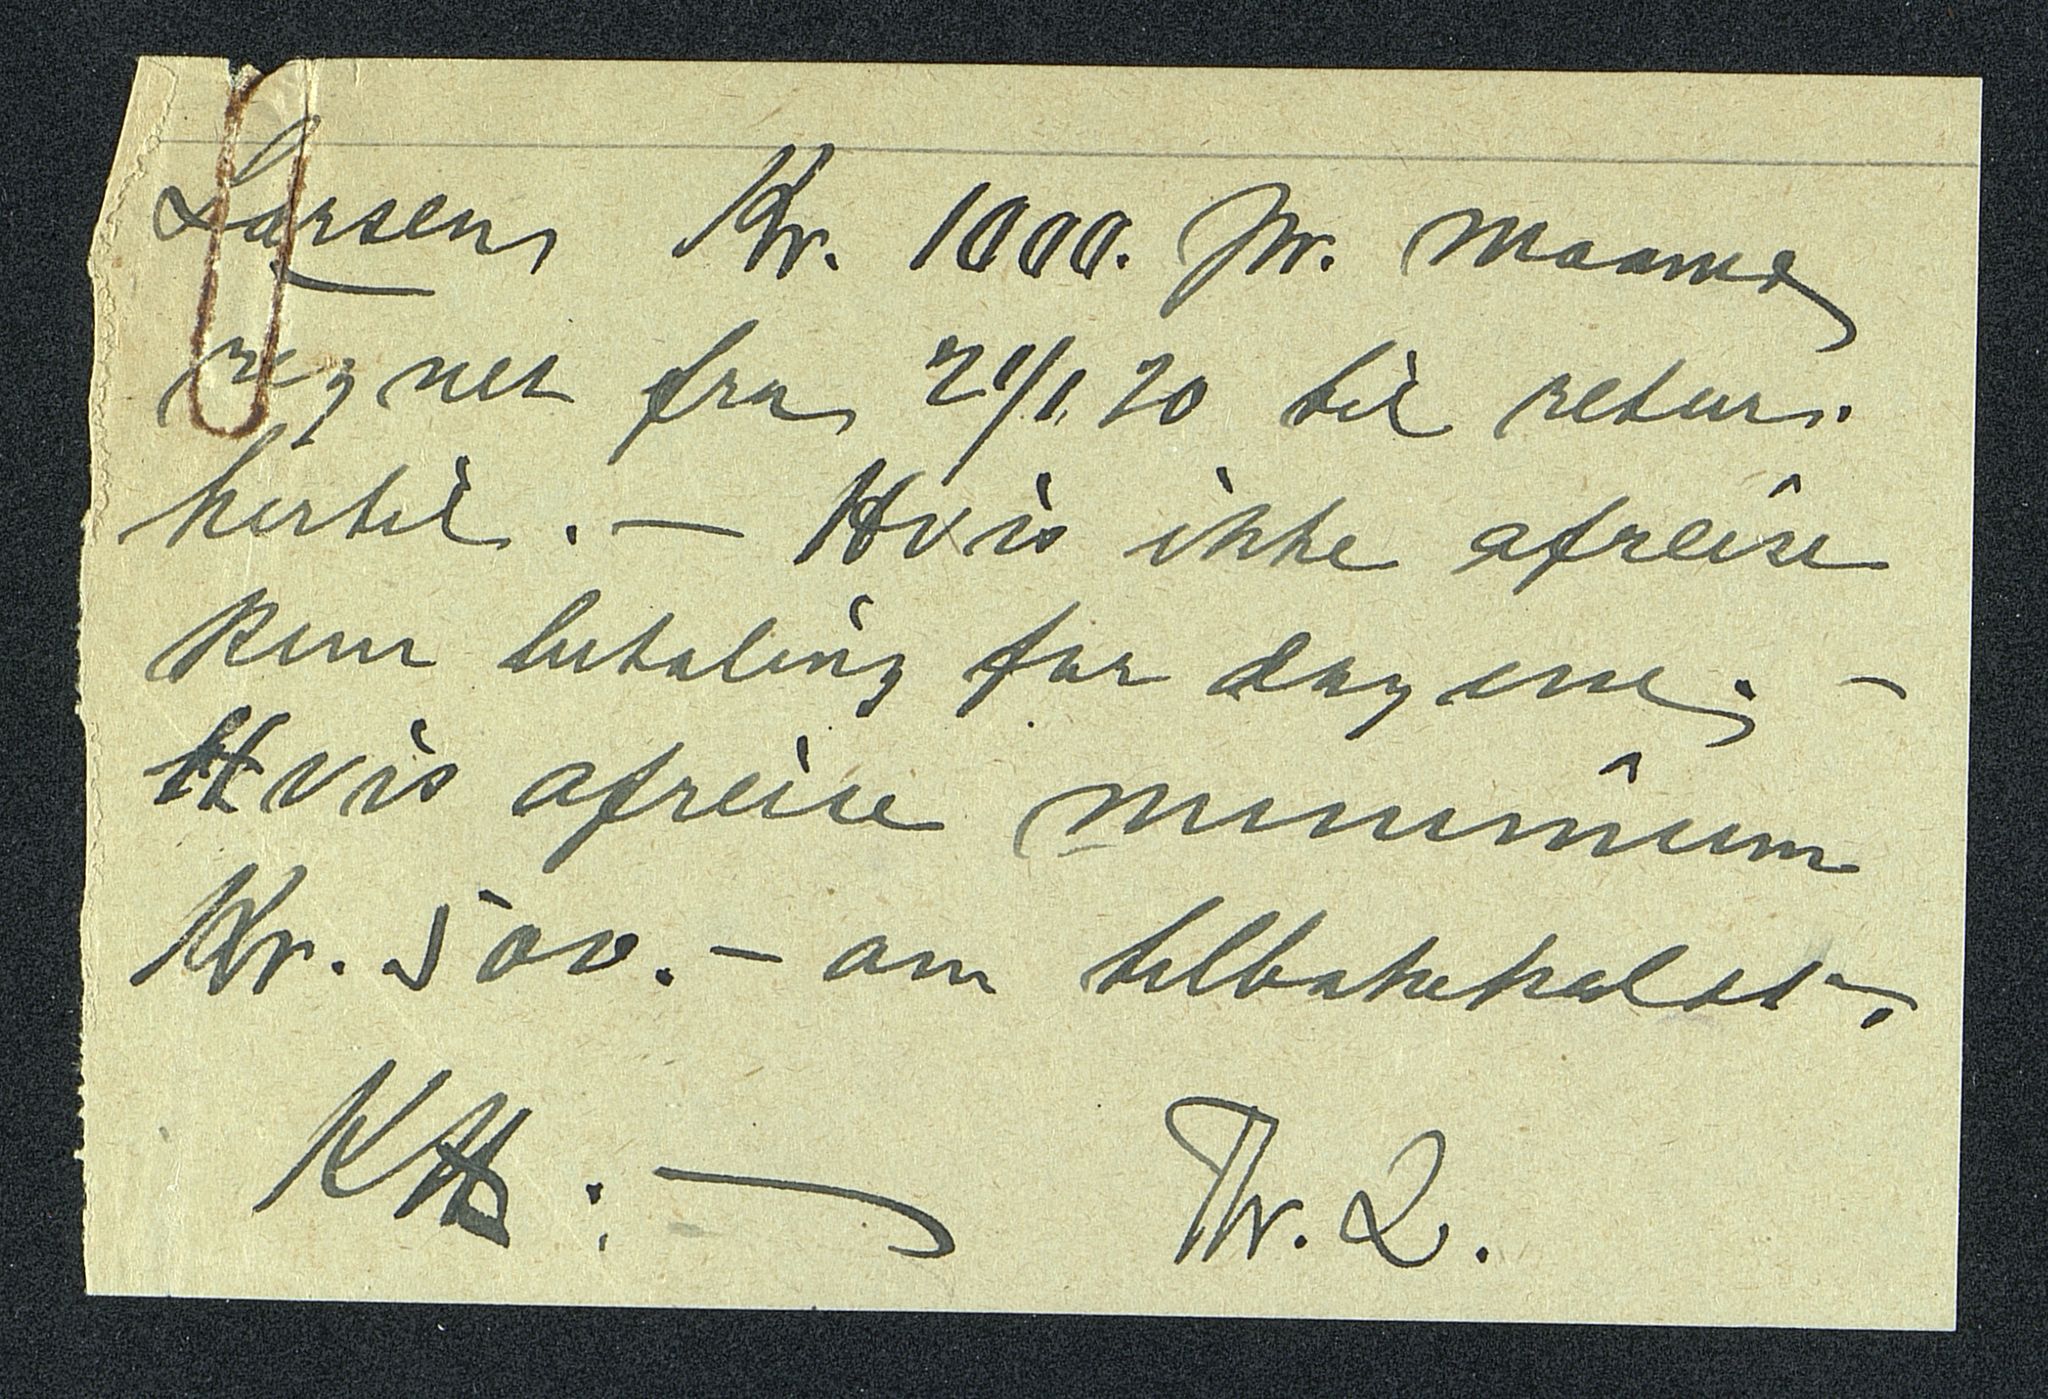 Larsen, Kr. 1000. pr. Maaned
regnet fra 21/1. 20 til retur.
hertil. — Hvis ikke afreise
kun betaling for dagene. —
Hvis afreise minimum
Kr. 500. — om tilbakekaldt.
Thr. L.